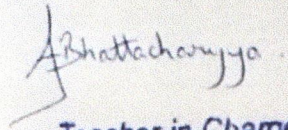 ABhattacharyya.
Teacher in Charge